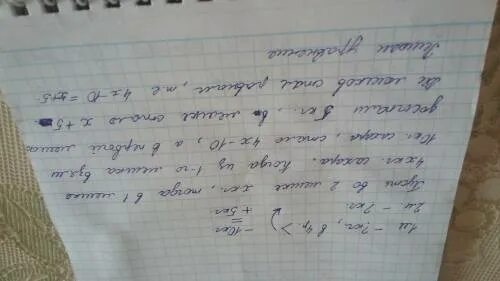 1м - ?кг, в 4р. > -10кг
2м - ?кг. +5кг
Пусть во 2 мешке х кг, тогда в 1 мешке
4х кг. сахара. Когда из 1-го мешка взяли
10кг. сахара, стало 4х-10, а в первый мешок
досыпали 5 кг., в мешке стало х+5
мешков стал равными, т.е 4х-10=х+5.
Решаем уравнение